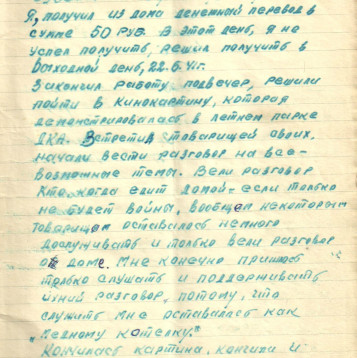 Я, получил из дома денежный перевод в
сумме 50 руб. В этот день, я не
успел получить, решил получить в
выходной день, 22.6.41г.
Закончил работу, под вечер, решили
пойти в кинокартину, которая
демонстрировалась в летнем парке
ДКА. Встретив товарищей своих,
начали вести разговор на все-
возможные темы. Вели разговор
кто когда едит домой - если только
не будет войны, вообщем некоторым
товарищам оставалось немного
дослуживать и только вели разговор
о доме. Мне конечно пришлось
только слушать и поддерживать
ихний разговор, потому, что
служить мне оставалось как
"Медному котелку."
Кончилась картина, кончила и